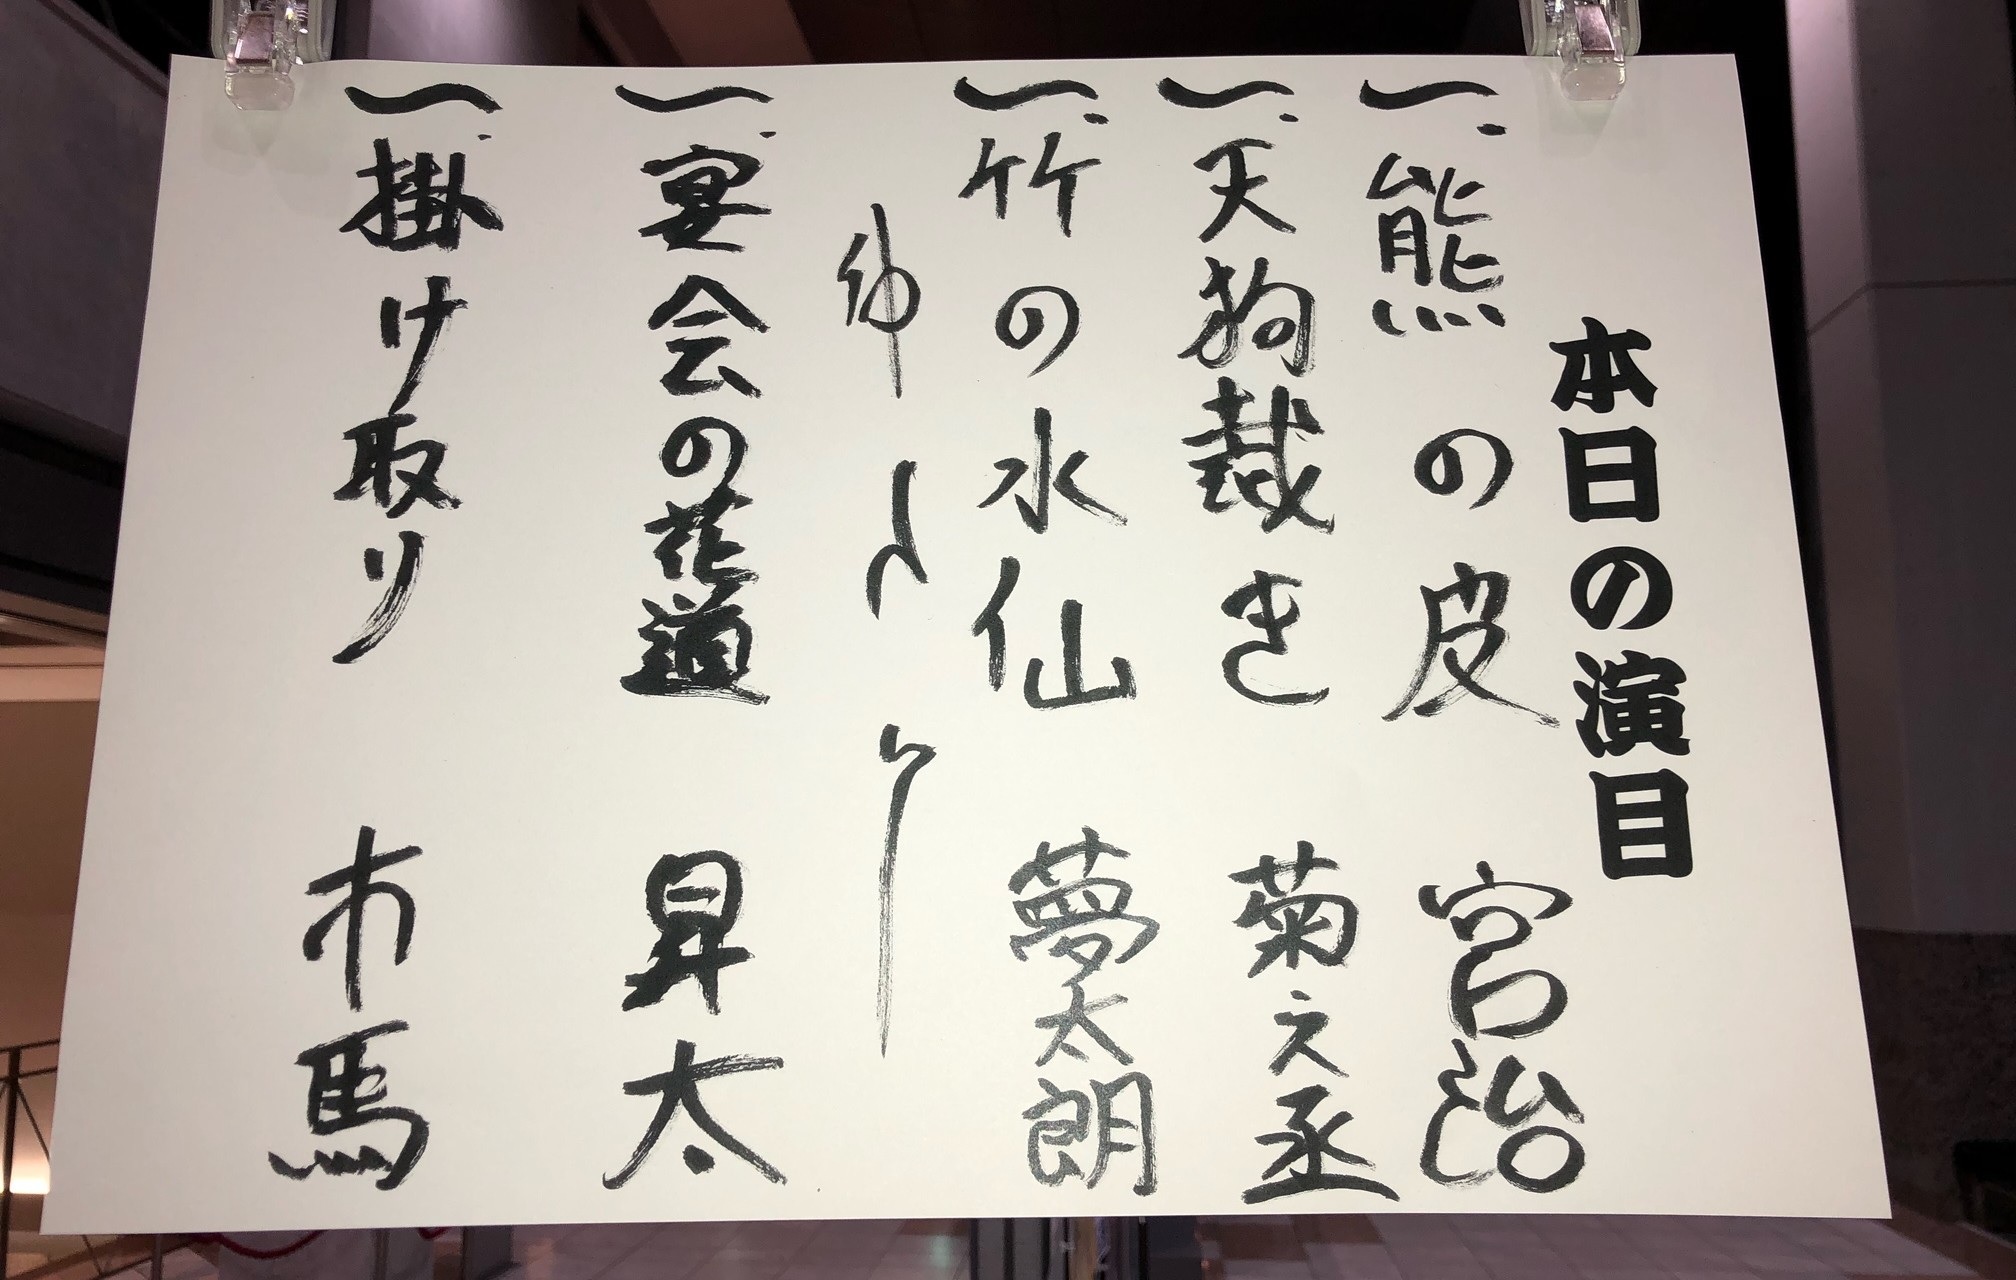 本日の演目
一、熊の皮 宮治
一、天狗裁き 菊之丞
一、竹の水仙 夢太朗
仲入り
一、宴会の花道 昇太
一、掛け取り 市馬